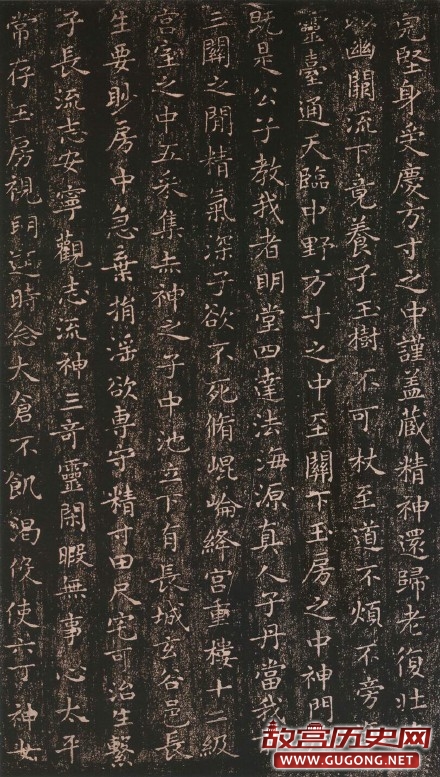 完堅身受慶方寸之中謹盖蔵精神還歸老復壯
以幽闕流下竟養子玉樹不可杖至道不煩不旁
靈臺通天臨中野方寸之中至關下玉房之中神門
既是公子教我者明堂四達法海源真人子丹當我
三關之閒精氣深子欲不死脩崐崘絳宫重樓十二級
宫室之中五采集赤神之子中池立下有長城玄谷邑長
生要眇房中急棄捐淫欲専守精寸田尺宅可治生繫
子長流志安寧觀志流神三奇靈閑暇無事心太平
常存玉房視明達時念大倉不飢渴役使六丁神女
故宫历史网
WWW.GUGONG.NET